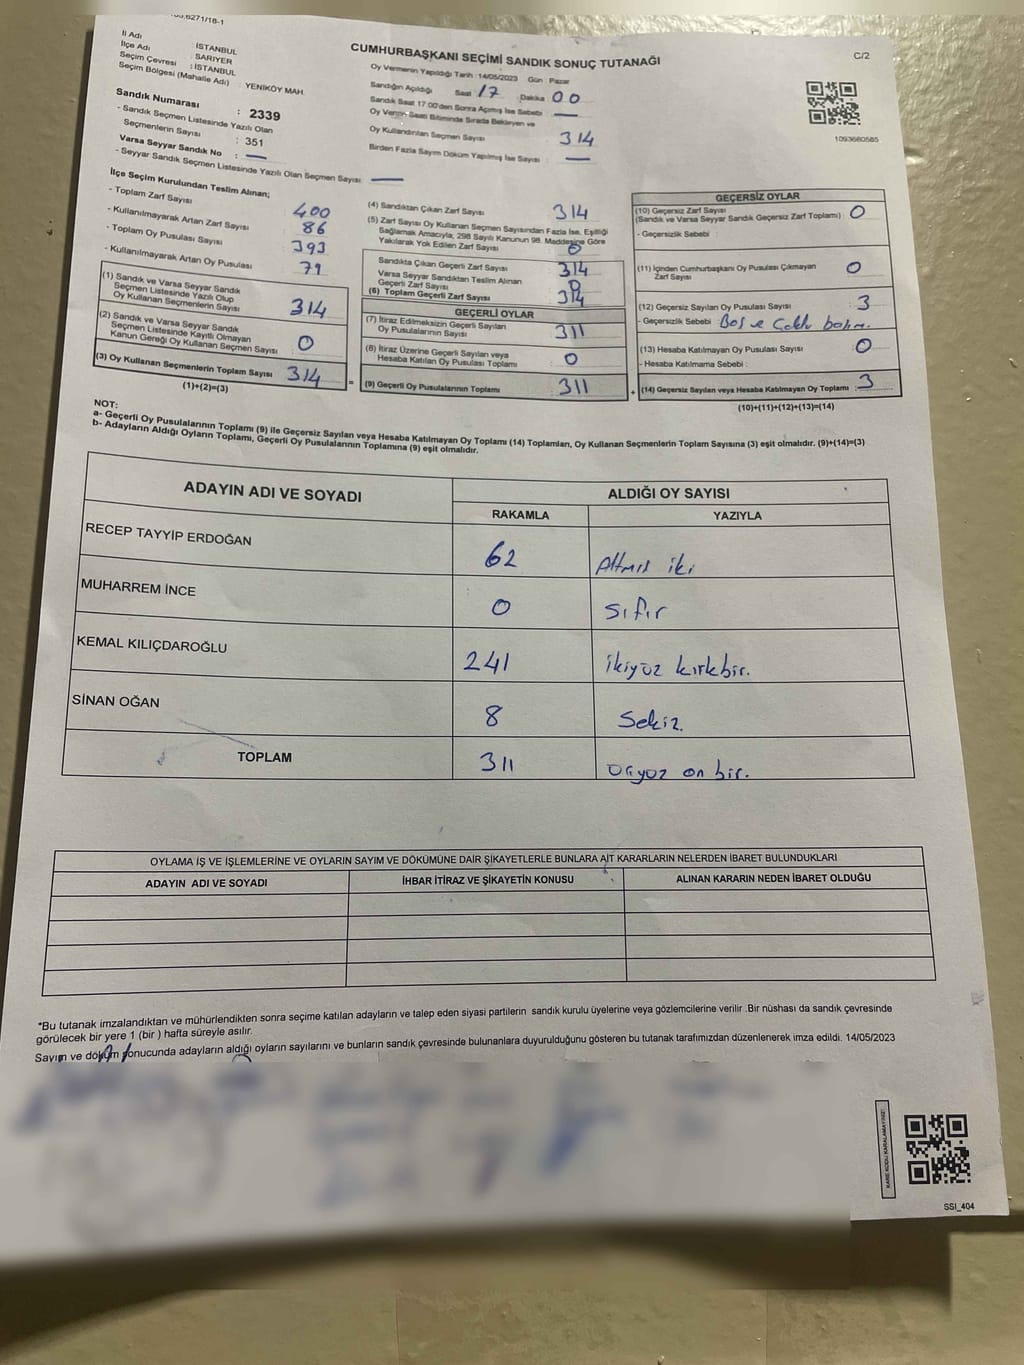 6271/18-1
İl Adı
İlçe Adı
Seçim Çevresi
Seçim Bölgesi (Mahalle Adı)
İSTANBUL
: SARIYER
: İSTANBUL
: YENİKÖY MAH.
Sandık Numarası : 2339
- Sandık Seçmen Listesinde Yazılı Olan
Seçmenlerin Sayısı : 351
Varsa Seyyar Sandık No : —
- Seyyar Sandık Seçmen Listesinde Yazılı Olan Seçmen Sayısı —
CUMHURBAŞKANI SEÇİMİ SANDIK SONUÇ TUTANAĞI
C/2
Oy Vermenin Yapıldığı Tarih : 14/05/2023 Gün : Pazar
Sandığın Açıldığı Saat : 17 Dakika 00
Sandık Saat 17:00'den Sonra Açılmış İse Sebebi —
Oy Verme Saati Bitiminde Sırada Bekleyen ve
Oy Kullandırılan Seçmen Sayısı : 314
Birden Fazla Sayım Döküm Yapılmış İse Sayısı : —
1093680585
İlçe Seçim Kurulundan Teslim Alınan;
- Toplam Zarf Sayısı 400
- Kullanılmayarak Artan Zarf Sayısı 86
- Toplam Oy Pusulası Sayısı 393
- Kullanılmayarak Artan Oy Pusulası 79
(1) Sandık ve Varsa Seyyar Sandık
Seçmen Listesinde Yazılı Olup
Oy Kullanan Seçmenlerin Sayısı 314
(2) Sandık ve Varsa Seyyar Sandık
Seçmen Listesinde Kayıtlı Olmayan
Kanun Gereği Oy Kullanan Seçmen Sayısı 0
(3) Oy Kullanan Seçmenlerin Toplam Sayısı 314
(1)+(2)=(3)
=
(4) Sandıktan Çıkan Zarf Sayısı 314
(5) Zarf Sayısı Oy Kullanan Seçmen Sayısından Fazla İse, Eşitliği
Sağlamak Amacıyla, 298 Sayılı Kanunun 98. Maddesine Göre
Yakılarak Yok Edilen Zarf Sayısı 0
Sandıkta Çıkan Geçerli Zarf Sayısı 314
Varsa Seyyar Sandıktan Teslim Alınan
Geçerli Zarf Sayısı 0
(6) Toplam Geçerli Zarf Sayısı 314
GEÇERLİ OYLAR
(7) İtiraz Edilmeksizin Geçerli Sayılan
Oy Pusulalarının Sayısı 311
(8) İtiraz Üzerine Geçerli Sayılan veya
Hesaba Katılan Oy Pusulası Toplamı 0
(9) Geçerli Oy Pusulalarının Toplamı 311
+
GEÇERSİZ OYLAR
(10) Geçersiz Zarf Sayısı
(Sandık ve Varsa Seyyar Sandık Geçersiz Zarf Toplamı) 0
- Geçersizlik Sebebi :
(11) İçinden Cumhurbaşkanı Oy Pusulası Çıkmayan
Zarf Sayısı 0
(12) Geçersiz Sayılan Oy Pusulası Sayısı : 3
- Geçersizlik Sebebi : Boş ve Çoklu
(13) Hesaba Katılmayan Oy Pusulası Sayısı : 0
- Hesaba Katılmama Sebebi :
(14) Geçersiz Sayılan veya Hesaba Katılmayan Oy Toplamı : 3
(10)+(11)+(12)+(13)=(14)
NOT:
a- Geçerli Oy Pusulalarının Toplamı (9) ile Geçersiz Sayılan veya Hesaba Katılmayan Oy Toplamı (14) Toplamları, Oy Kullanan Seçmenlerin Toplam Sayısına (3) eşit olmalıdır. (9)+(14)=(3)
b- Adayların Aldığı Oyların Toplamı, Geçerli Oy Pusulalarının Toplamına (9) eşit olmalıdır.
ADAYIN ADI VE SOYADI
ALDIĞI OY SAYISI
RAKAMLA YAZIYLA
RECEP TAYYİP ERDOĞAN 62 Altmış iki
MUHARREM İNCE 0 Sıfır
KEMAL KILIÇDAROĞLU 241 ikiyüz kırkbir.
SİNAN OĞAN 8 Sekiz.
TOPLAM 311 Üçyüz on bir.
OYLAMA İŞ VE İŞLEMLERİNE VE OYLARIN SAYIM VE DÖKÜMÜNE DAİR ŞİKAYETLERLE BUNLARA AİT KARARLARIN NELERDEN İBARET BULUNDUKLARI
ADAYIN ADI VE SOYADI İHBAR İTİRAZ VE ŞİKAYETİN KONUSU ALINAN KARARIN NEDEN İBARET OLDUĞU
*Bu tutanak imzalandıktan ve mühürlendikten sonra seçime katılan adayların ve talep eden siyasi partilerin sandık kurulu üyelerine veya gözlemcilerine verilir .Bir nüshası da sandık çevresinde
görülecek bir yere 1 (bir ) hafta süreyle asılır.
Sayım ve döküm sonucunda adayların aldığı oyların sayılarını ve bunların sandık çevresinde bulunanlara duyurulduğunu gösteren bu tutanak tarafımızdan düzenlenerek imza edildi. 14/05/2023
KARE KODU KARALAMAYINIZ!
SSI_404